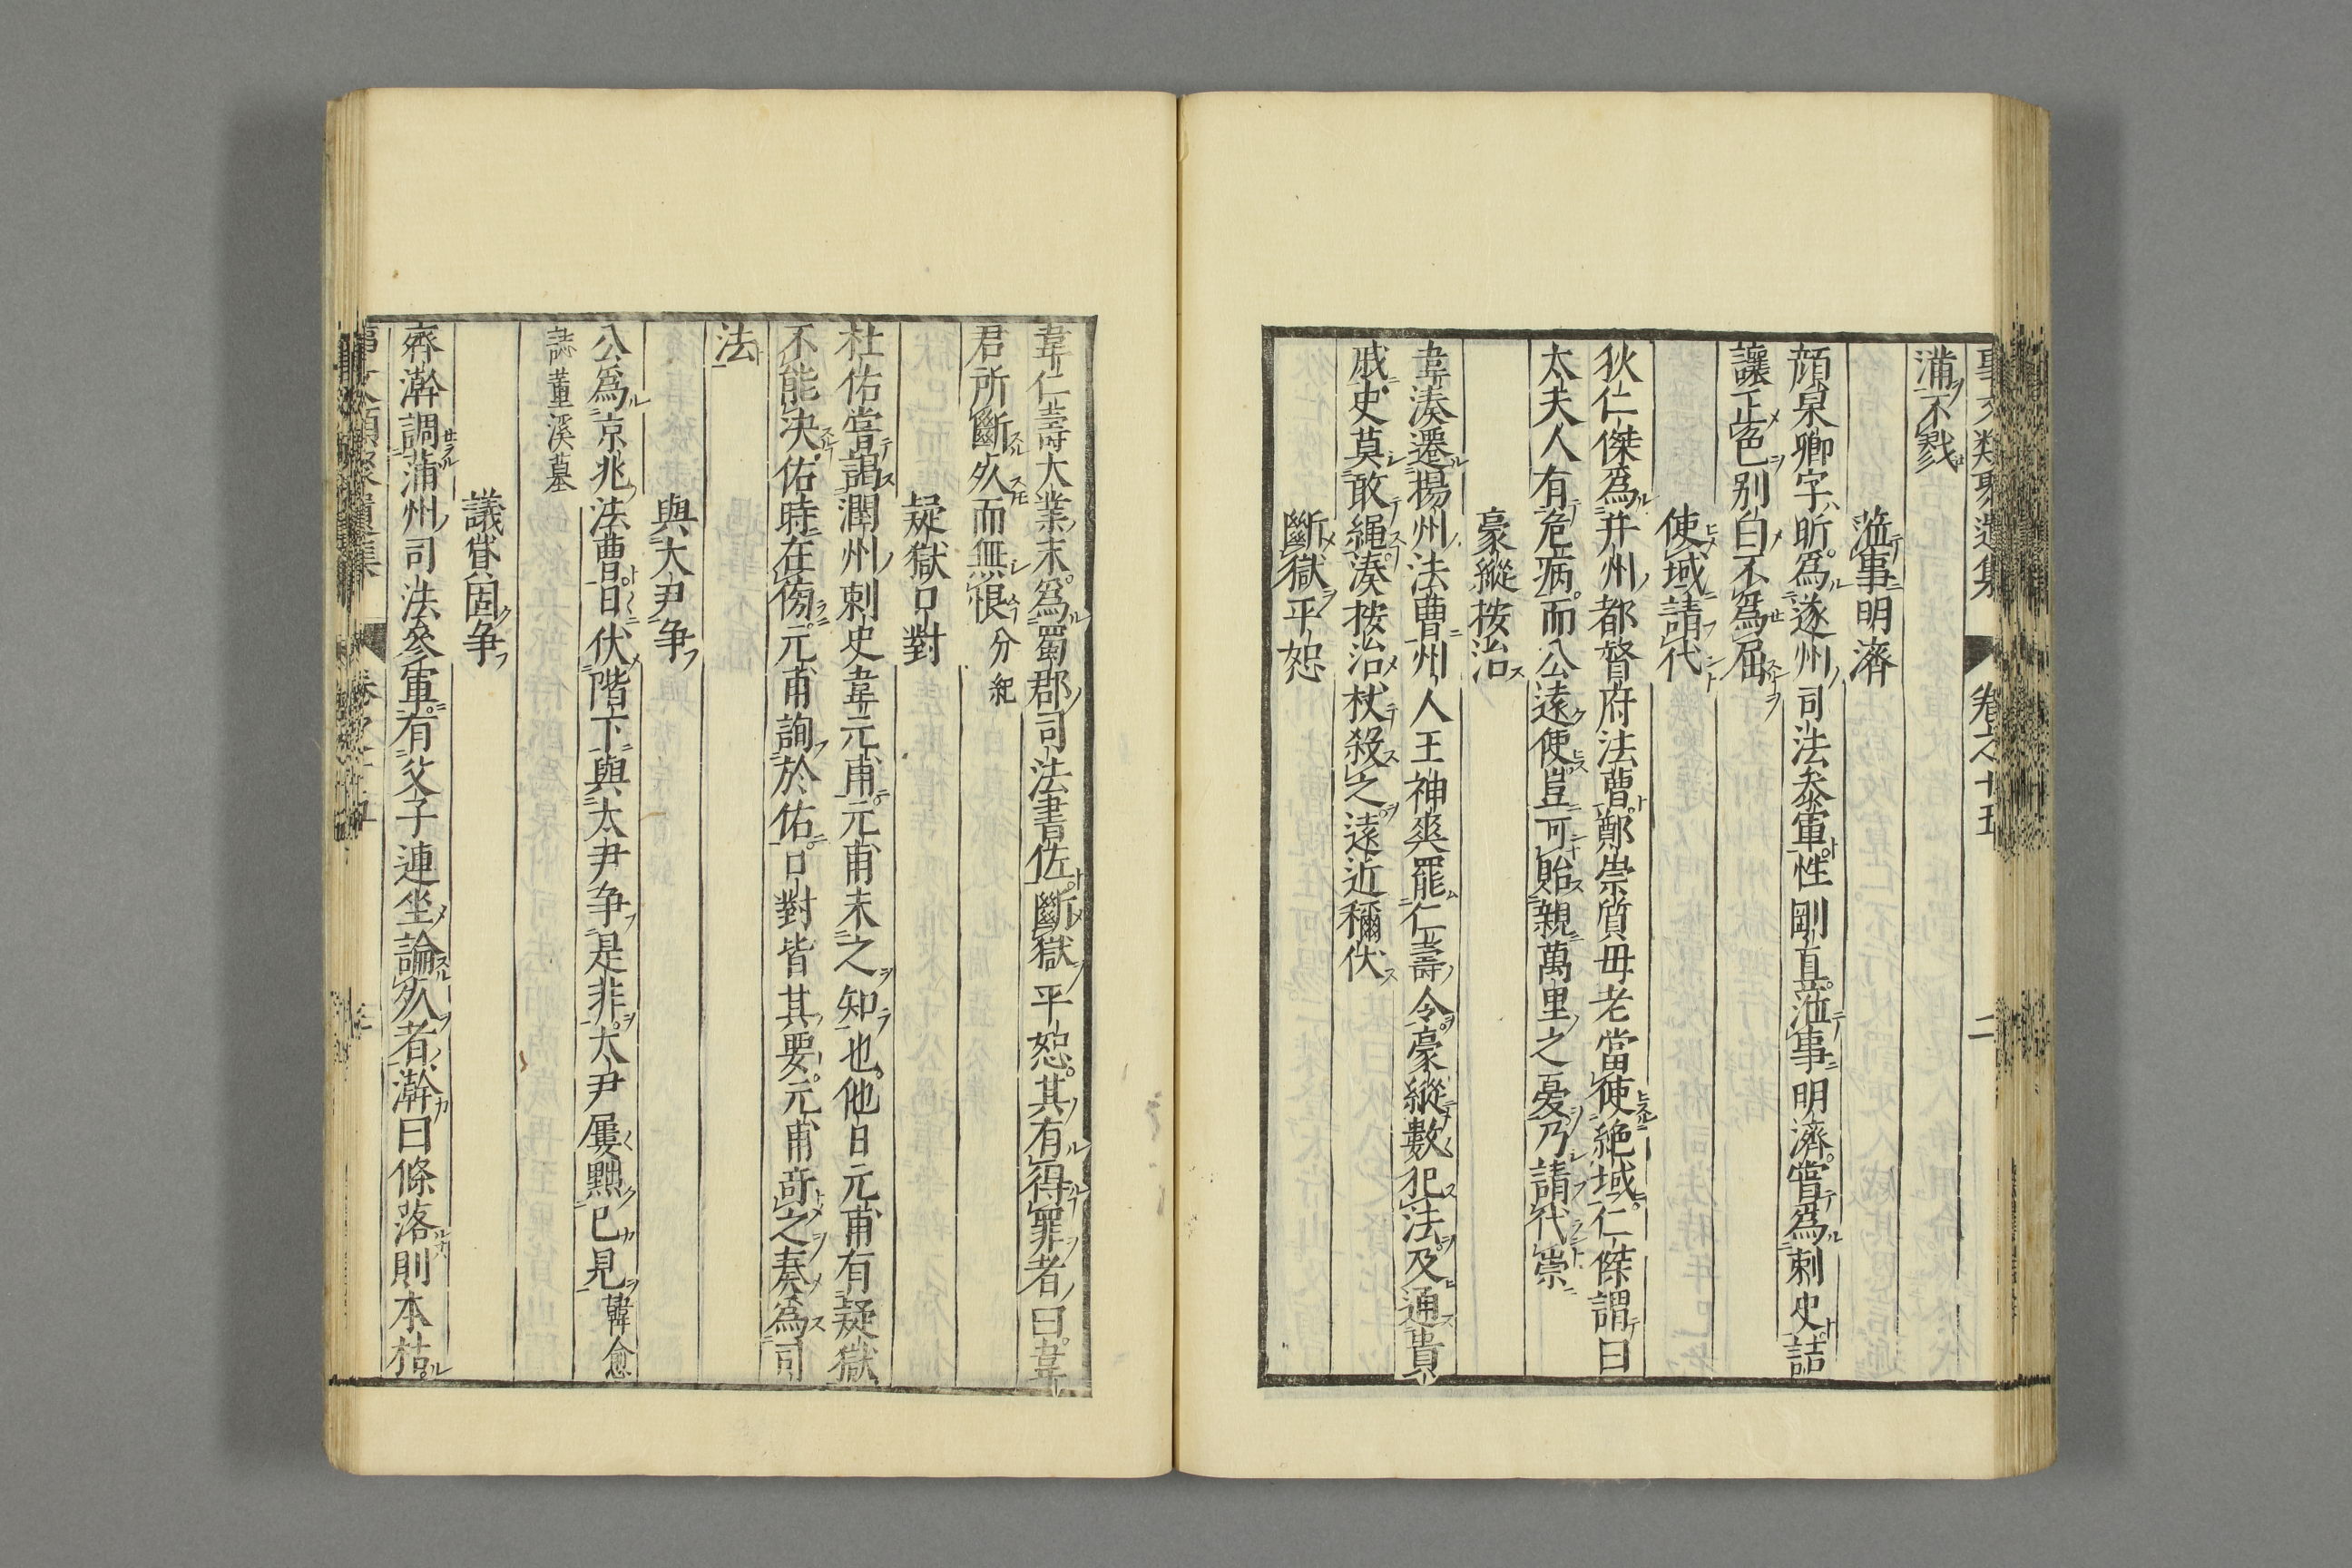 事文類聚遺集 卷之十五 二
滿不戮
涖事明濟
顔杲卿字昕爲遂州司法參軍性剛直涖事明濟嘗爲刺史詰
讓正色别白不爲屈
使域請代
狄仁傑爲并州都督府法曹鄭崇質母老當使絶域仁傑謂曰
太夫人有危病而公遠使豈可貽親萬里之憂乃請代崇
豪縱按治
韋湊遷揚州法曹州人王神爽罷仁壽令豪縱數犯法及通貴
戚吏莫敢繩湊按治杖殺之遠近稱伏
斷獄平恕
韋仁壽大業末爲蜀郡司法書佐斷獄平恕其有得罪者曰韋
君所斷死而無恨 分紀
疑獄口對
杜佑嘗謁潤州刺史韋元甫元甫未之知也他日元甫有疑獄
不能决佑時在傍元甫詢於佑口對皆其要元甫奇之奏爲司
法
與大尹争
公爲京兆法曹日伏階下與太尹争是非大尹屢黜已見 韓愈
誌董溪墓
議貸固争
齊澣調蒲州司法參軍有父子連坐論死者澣曰條落則本枯